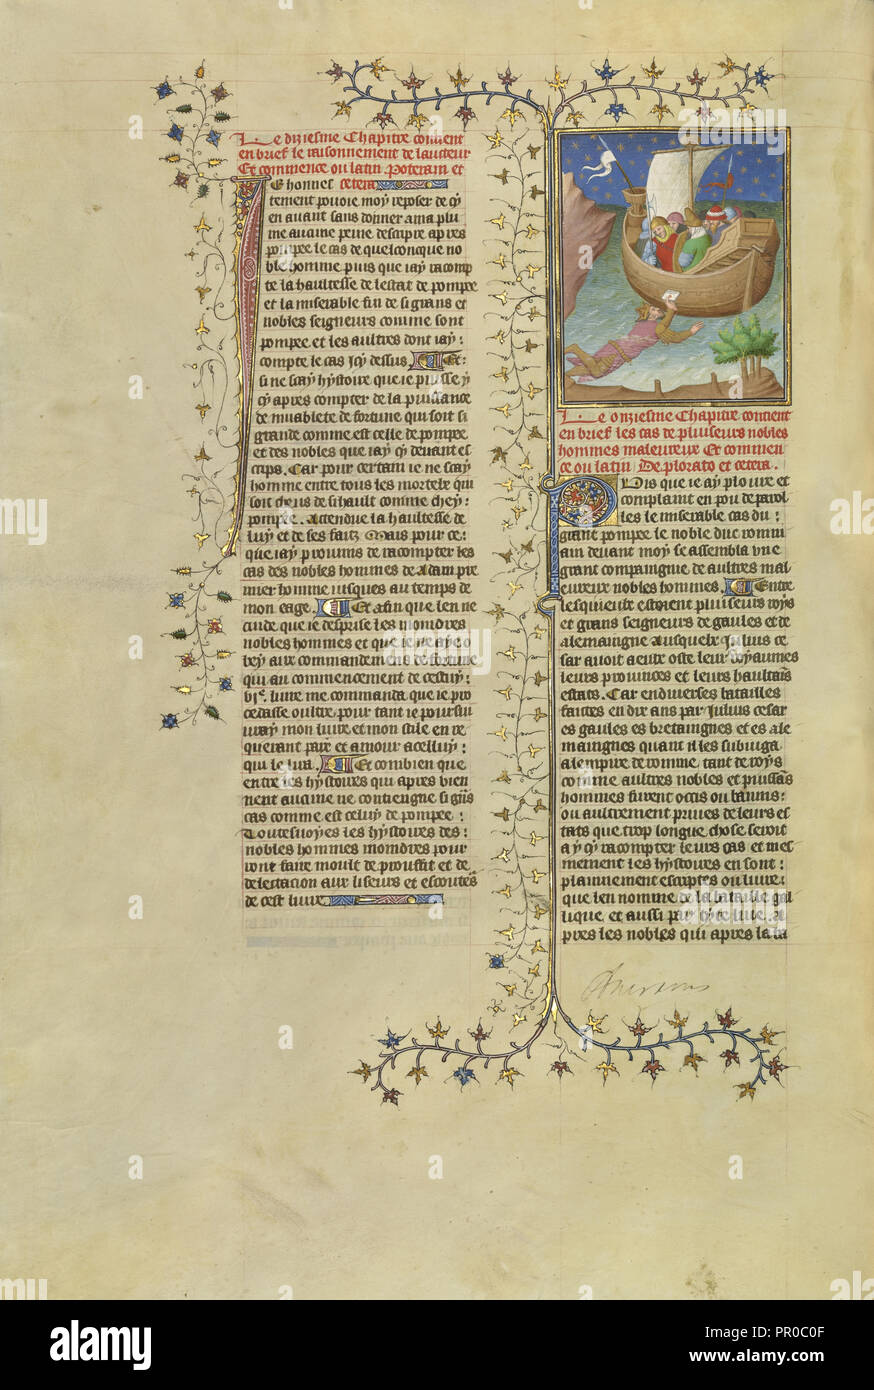 Le dixiesme Chapitre contient
en brief le raisonnement de lauteur
Et commence ou latin Poteram et
cetera
honnes
tement pouoie moy reposer de cy
en auant sans donner a ma plu
me aucune peine descripre apres
pompee le cas de quelconque no
ble homme puis que iay racomp
te la haultesse de lestat de pompee
et la miserable fin de si grans et
nobles seigneurs comme sont
pompee et les aultres dont iay
compte le cas icy dessus Et
si ne scay hystoire que ie puisse y
cy apres compter de la puissance
de muablete de fortune qui soit si
grande comme est celle de pompee
et des nobles que iay cy deuant es
crips. Car pour certain ie ne scay
homme entre tous les mortelz qui
soit cheus de si hault comme chey
pompee. Attendue la haultesse de
luy et de ses faiz Mais pour ce
que iay promis de racompter les
cas des nobles hommes de Adam pre
mier homme iusques au temps de
mon eage. Et afin que len ne
cuide que ie desprise les moindres
nobles hommes et que ie ne aye o
bey aux commandemens de fortune
qui au commencement de cestuy
vi.e liure me commanda que ie pro
cedasse oultre pour tant ie poursui
uray mon liure et mon stile en re
querant paix et amour a celluy
qui le lira. Et combien que
entre les hystoires qui apres vien
nent aucune ne contiengne si gns
cas comme est celuy de pompee
Toutesuoyes les hystoires des
nobles hommes moindres pour
ront faire moult de prouffit et de
delectacion aux liseurs et escoutes
de cest liure
Le onziesme Chapitre contient
en brief les cas de pluiseurs nobles
hommes maleureux Et commen
ce ou latin Deplorato et cetera.
Puis que ie ay plouré et
complaint en pou de parol
les le miserable cas du
grant pompee le noble duc romm
ain deuant moy se assembla vne
grant compaingnie de aultres mal
eureux nobles hommes. Entre
lesquielz estoient pluiseurs roys
et grans seigneurs de gaules et de
alemaingne Ausquelz Julius ce
sar auoit a eulx oste leur royaumes
leurs prouinces et leurs haultains
estats. Car en diuerses batailles
faictes en dix ans par Julius cesar
es gaules es bretaingnes et es ale
maingnes quant il les subiuga
a lempire de romme tant de roys
comme aultres nobles et puissas
hommes furent occis ou bannis
ou aultrement priues de leurs es
tats que trop longue chose seroit
a y cy racompter leurs cas et mes
mement les hystoires en sont
plainnement escriptes ou liure
que len nomme de la bataille gal
lique et aussi par hyrce liure. A
pres les nobles qui apres la la
alamy stock photo
PR0C0F
www.alamy.com